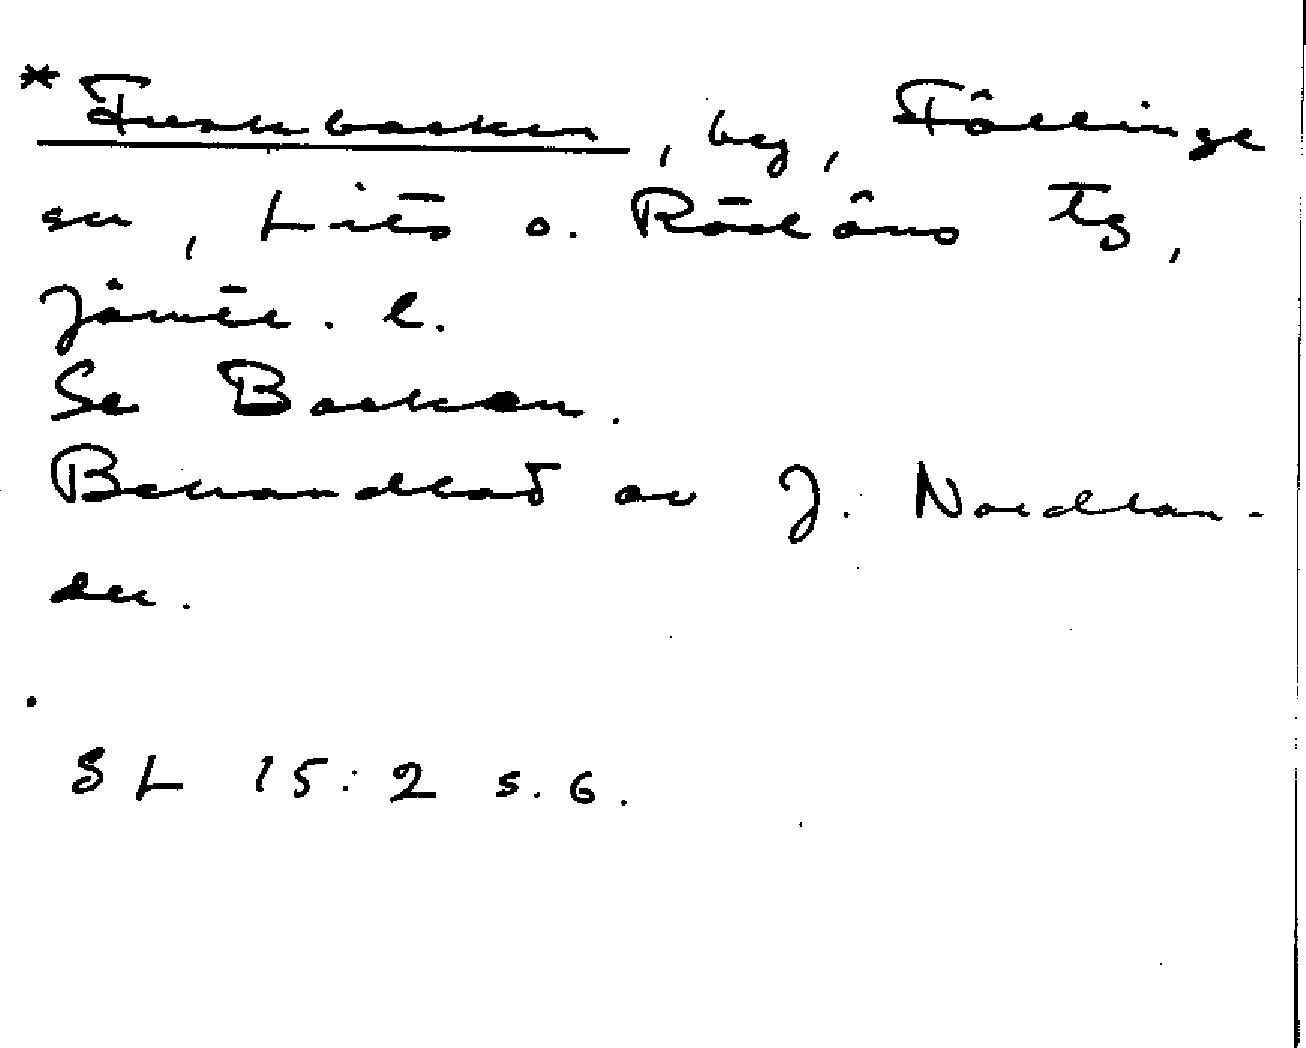 , by, Föllinge
sn, Lits o. Rödöns tg,
Jämtl. l.
Se Backen.
Behandlat av J. Nordlan-
der.
SL 15:2 s. 6.